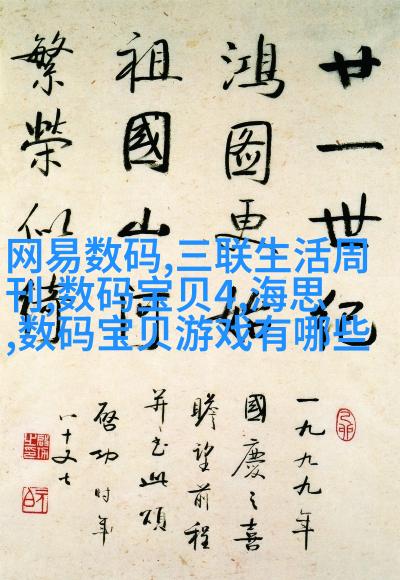 廿一世紀
鴻圖更始
祖國山河
繁榮似綺
网易数码,三联生活周
刊,数码宝贝4,海思
,数码宝贝游戏有哪些
一九九九年
國慶之喜
瞻望前程
并書此頌
啓功时年
八十又七